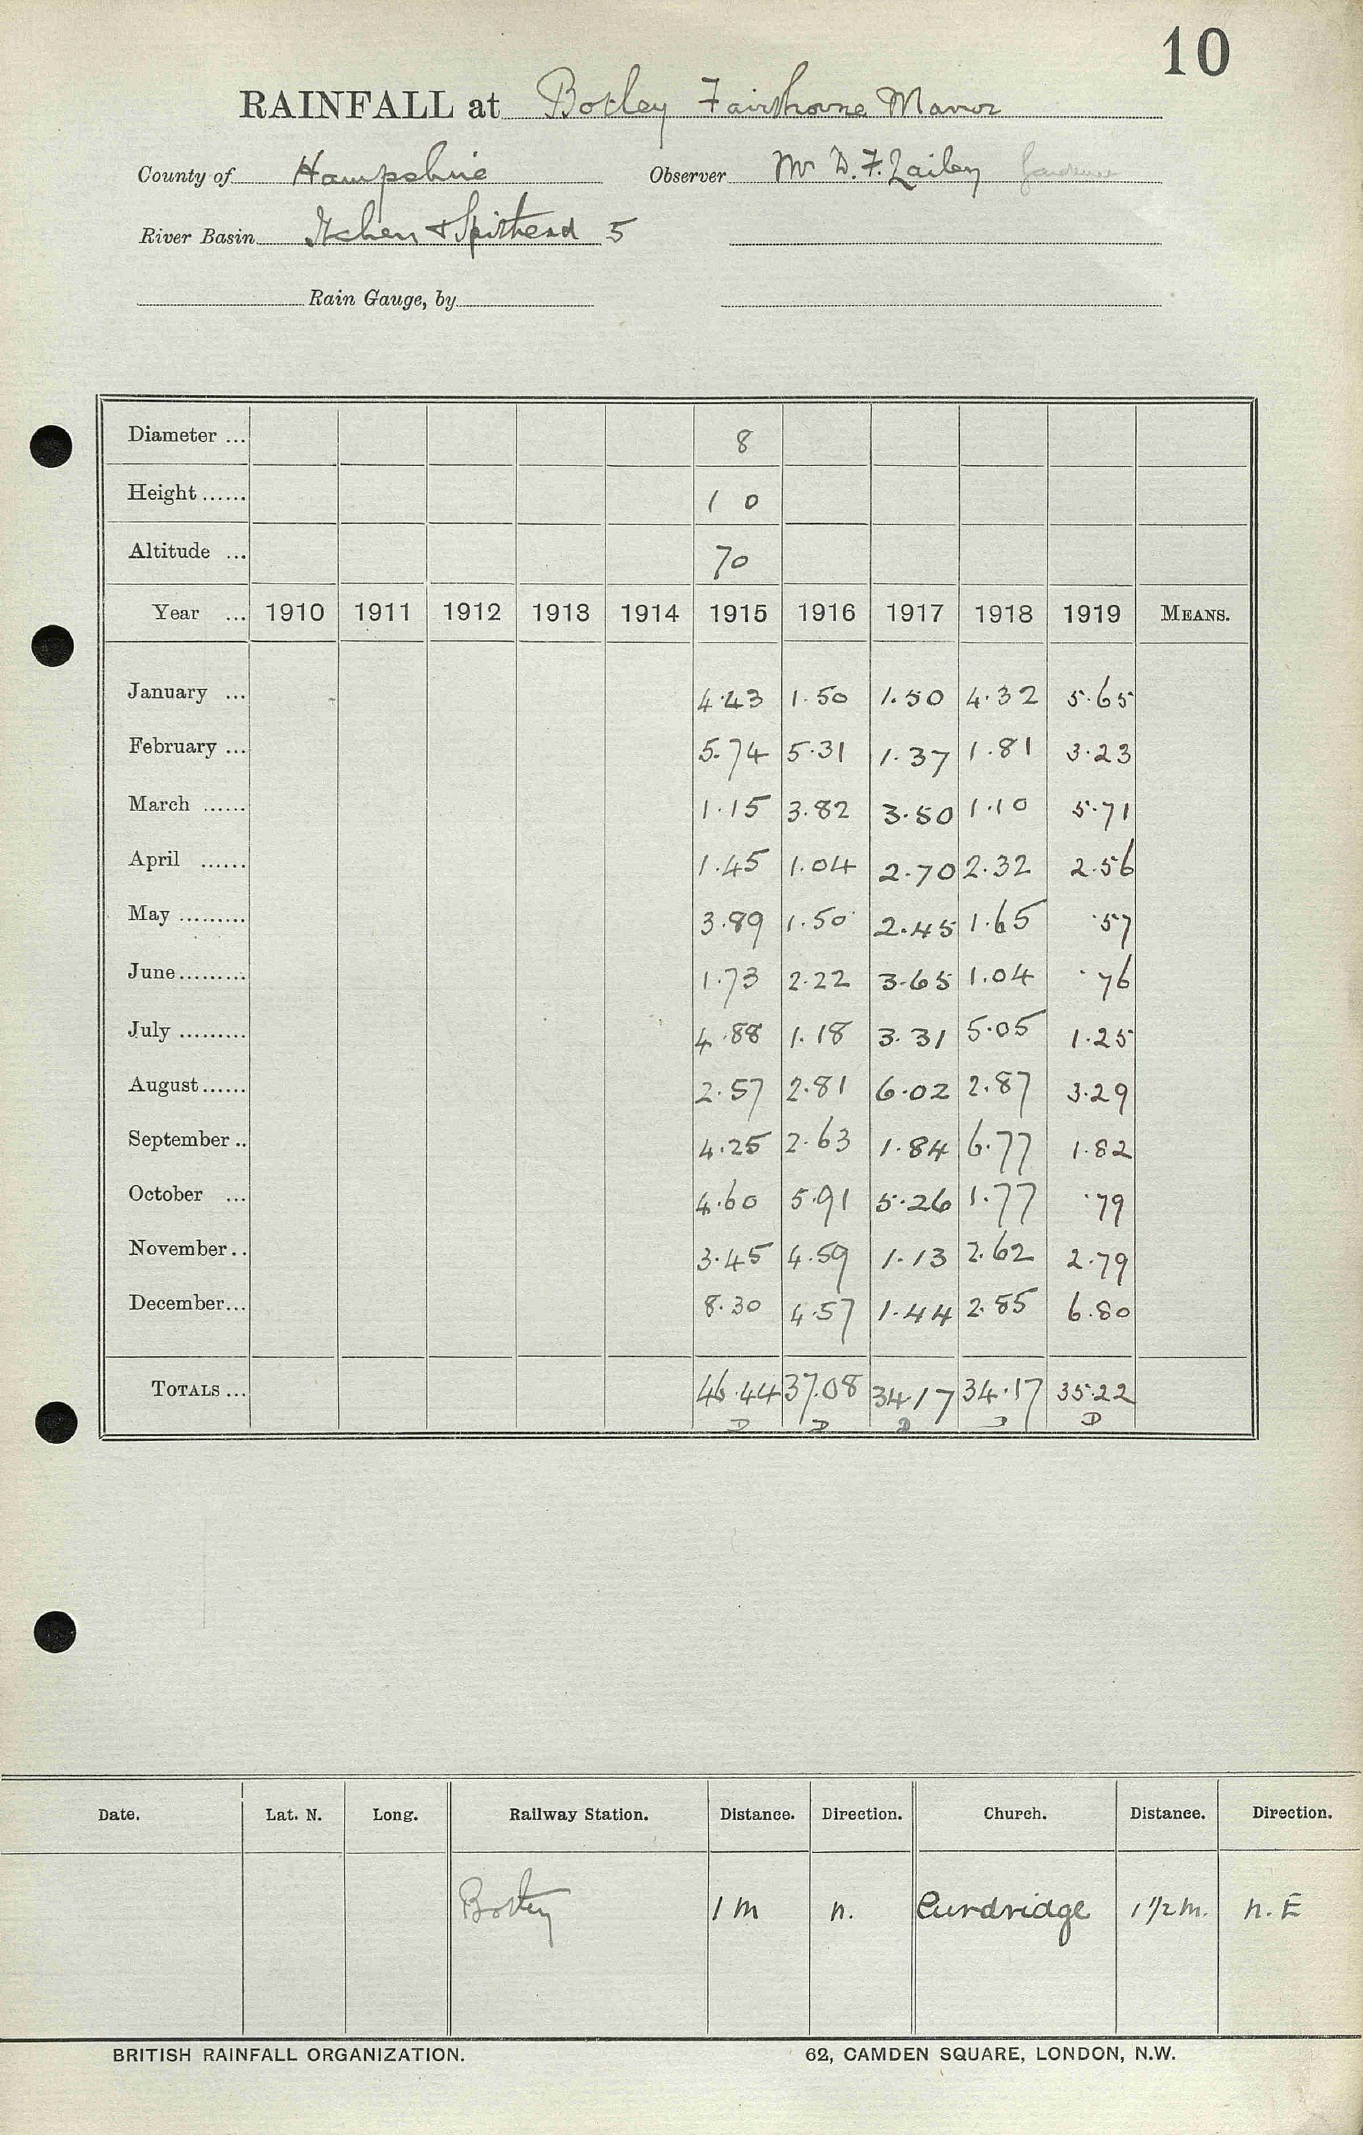 10
RAINFALL at Botley Fairthorne Manor
County of Hampshire Observer Mr D.F. Lailey
River Basin Itchen & Spithead 5
Rain Gauge, by
Diameter ... 8
Height ...... 1 0
Altitude ... 70
Year ... 1910 1911 1912 1913 1914 1915 1916 1917 1918 1919 MEANS.
January ... 4.43 1.50 1.50 4.32 5.65
February ... 5.74 5.31 1.37 1.81 3.23
March ...... 1.15 3.82 3.50 1.10 5.71
April ...... 1.45 1.04 2.70 2.32 2.56
May ......... 3.89 1.50 2.45 1.65 .57
June ......... 1.73 2.22 3.65 1.04 .76
July ......... 4.88 1.18 3.31 5.05 1.25
August ...... 2.57 2.81 6.02 2.87 3.29
September .. 4.25 2.63 1.84 6.77 1.82
October ... 4.60 5.91 5.26 1.77 .79
November .. 3.45 4.59 1.13 2.62 2.79
December ... 8.30 4.57 1.44 2.85 6.80
TOTALS ... 46.44 37.08 34.17 34.17 35.22
D D D D D
Date. Lat. N. Long. Railway Station. Distance. Direction. Church. Distance. Direction.
Botley 1 m n. Curdridge 1 1/2 m. n. E
BRITISH RAINFALL ORGANIZATION. 62, CAMDEN SQUARE, LONDON, N.W.